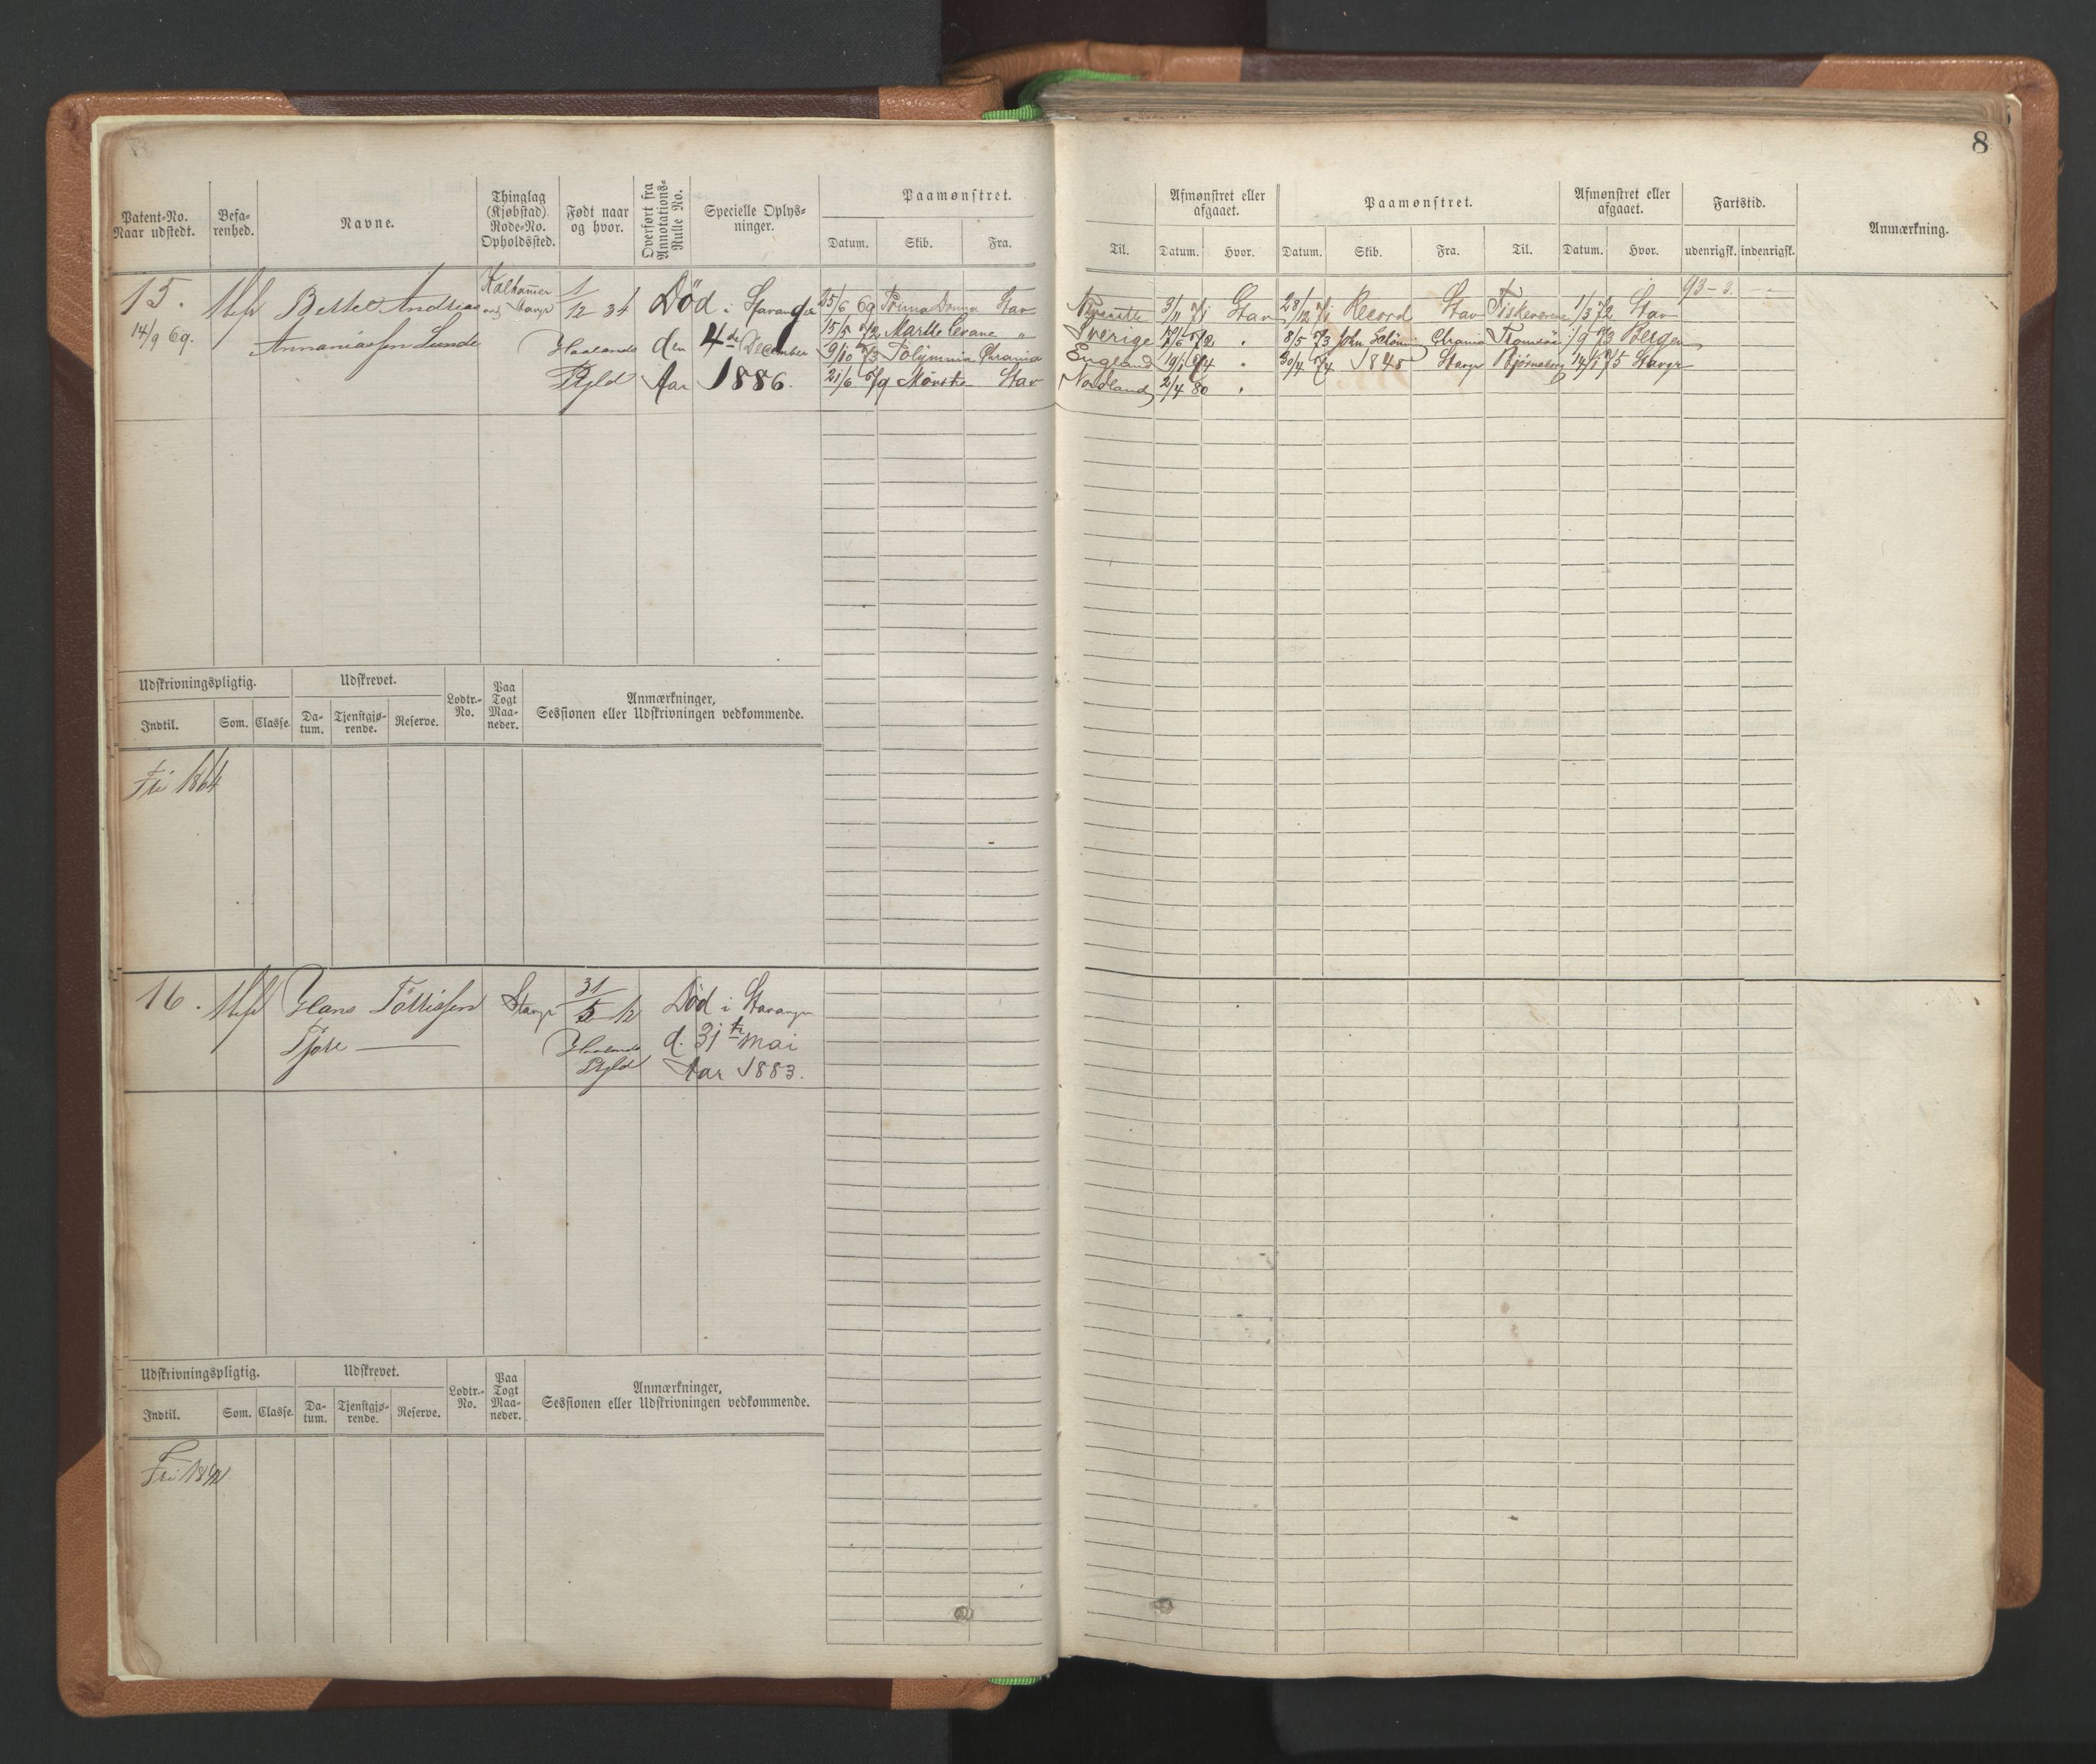 8
Patent-No.
Naar udstedt.
Befa-
renhed.
Navne.
Thinglag
(Kjøbstad)
Rode-No.
Opholdssted.
Født naar
og hvor.
Overført fra
Annotations-
Rulle No.
Specielle Oplys-
ninger.
Paamønstret.
Datum.
Skib.
Fra.
Til.
Afmønstret eller
afgaaet.
Datum.
Hvor.
Paamønstret.
Datum.
Skib.
Fra.
Til.
Afmønstret eller
afgaaet.
Datum.
Hvor.
Fartstid.
udenrigsk.
indenrigsk.
Anmærkning.
15.
14/9 69.
Bertel Andreas
Annaniassen Lunde
Stavgr
1/12 34
Haalands
Skyld
Død i Stavanger
den 4de December
Aar 1886.
25/6 69 Prima Donna Stav
3/11 71 Stav
28/12 71 Record Stav
1/3 72 Stav
93
15/5 72 Marthe "
Sverige 17/6 72 "
8/5 73 John Chrania Tromsøe 1/9 73 Bergen
9/10 73 Polymnia Chrania
England 19/1 74 "
30/4 74 1845 Stavgr Bjørneborg 14/1 75 Stavgr
21/6 79 Stav
Nordland 2/4 80 "
Udskrivningspligtig.
Indtil.
Som.
Classe.
Udskrevet.
Da-
tum.
Tjenstgjø-
rende.
Reserve.
Lodtr.-
No.
Paa
Togt
Maa-
neder.
Anmærkninger,
Sessionen eller Udskrivningen vedkommende.
Fri 1864
16.
Hans
Tjore
Stavgr
31/5 12
Haalands
Skyld
Død i Stavanger
d. 31te Mai
Aar 1883.
Udskrivningspligtig.
Indtil.
Som.
Classe.
Udskrevet.
Da-
tum.
Tjenstgjø-
rende.
Reserve.
Lodtr.-
No.
Paa
Togt
Maa-
neder.
Anmærkninger,
Sessionen eller Udskrivningen vedkommende.
Fri